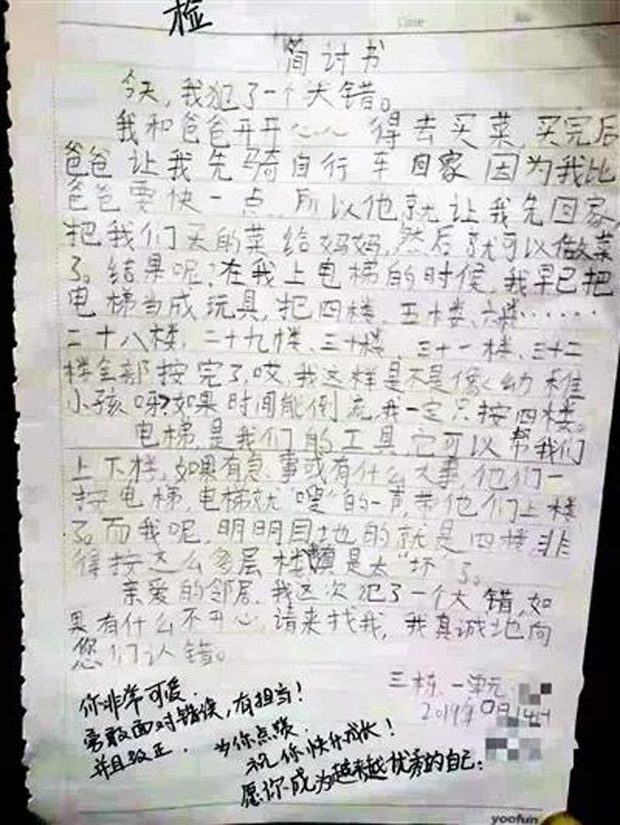 检
Date
简讨书
今天,我犯了一个大错。
我和爸爸开开心心得去买菜,买完后
爸爸让我先骑自行车回家因为我比
爸爸要快一点,所以他就让我先回家,
把我们买的菜给妈妈,然后就可以做菜
了。结果呢?在我上电梯的时候,我早已把
电梯当成玩具,把四楼、五楼、六楼……
二十八楼、二十九楼、三十楼、三十一楼、三十二
楼全部按完了,哎,我这样是不是像幼稚
小孩呀?如果时间能倒流,我一定只按四楼。
电梯是我们的工具,它可以帮我们
上下楼,如果有急事或有什么大事,他们一
按电梯,电梯就“嗖”的一声,带他们上楼
了。而我呢,明明目地的就是四楼,非
得按这么多层楼是太“坏”了。
亲爱的邻居,我这次犯了一个大错,如
果有什么不开心,请来找我,我真诚地向
您们认错。
三栋、一单元
2019年 月14日
你非常可爱.
勇敢面对错误,有担当!
并且改正. 为你点赞.
祝你快乐成长!
愿你成为越来越优秀的自己.
yoofun